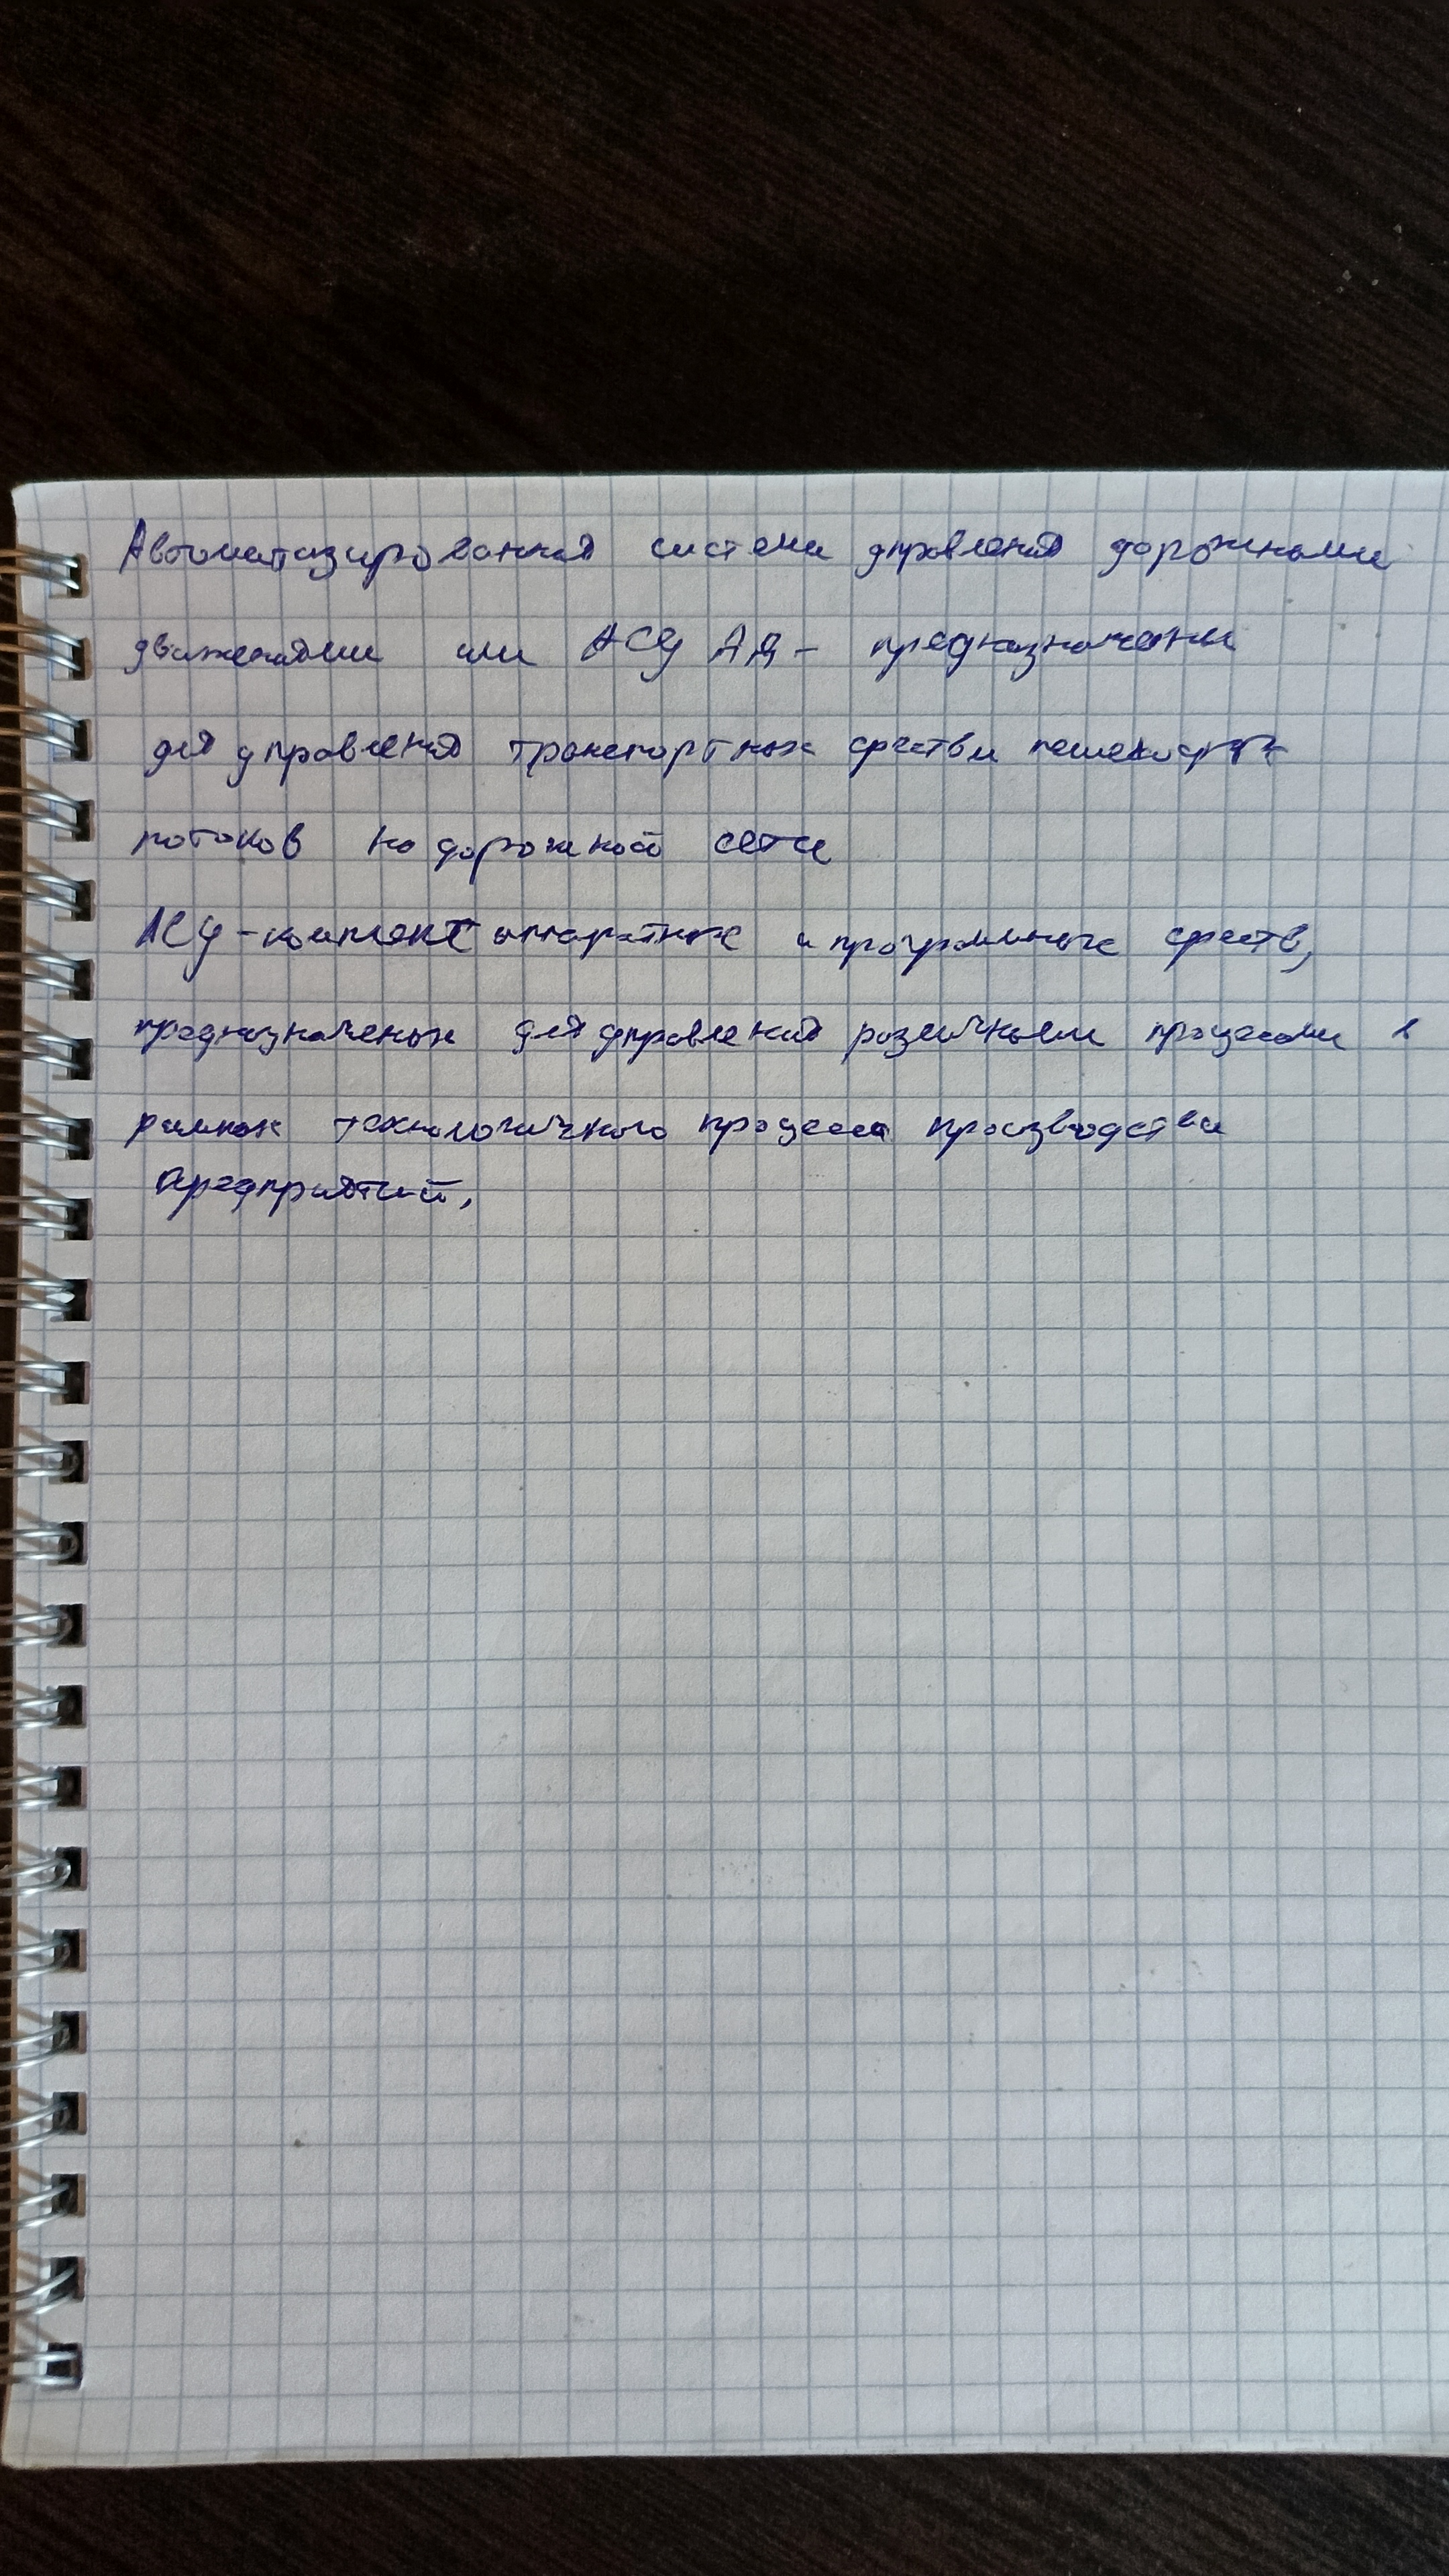 Автоматизированная система управления дорожными
движениями или АСУ ДД - предназначены
для управления транспортных средств и пешеходных
потоков на дорожной сети
АСУ - комплект аппаратных и программных средств,
предназначеных для управления различными процесами в
рамках технологичного процесса производства
предприятий,